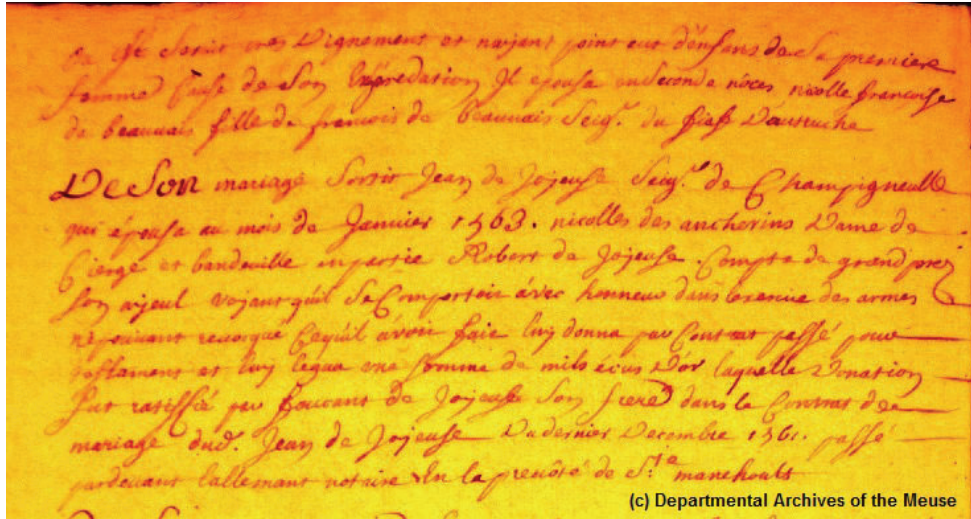 servit tres Dignement et nayant point eut d'enfans de Sa premiere
femme Cause de Son Il epousa en Seconde nôces nicolle francoise
de beauvais fille de francois de beauvais Seigr. du fief Dautruche
De Son mariage Sortit Jean de Joyeuse Seigr. de Champigneulle
qui épousa au mois de Janvier 1563. nicolles des ancherins Dame de
Cierge et bandeville en partie Robert de Joyeuse. Compte de grandprez
Son ayeul voyant qu'il Se Comportoit avec honneur dans des armes
ne pouvant revoqué Cequil avoit faie luy donna par Contrat passé pour
testament et luy legua une Somme de mils écus D'or laquelle Donation
fut ratiffié par foucant de Joyeuse Son frere dans le Contrat de
mariage dud. Jean de Joyeuse Du dernier Decembre 1561. passé
pardevant lallemant notaire En la prevôté de Ste. manehoults
(c) Departmental Archives of the Meuse